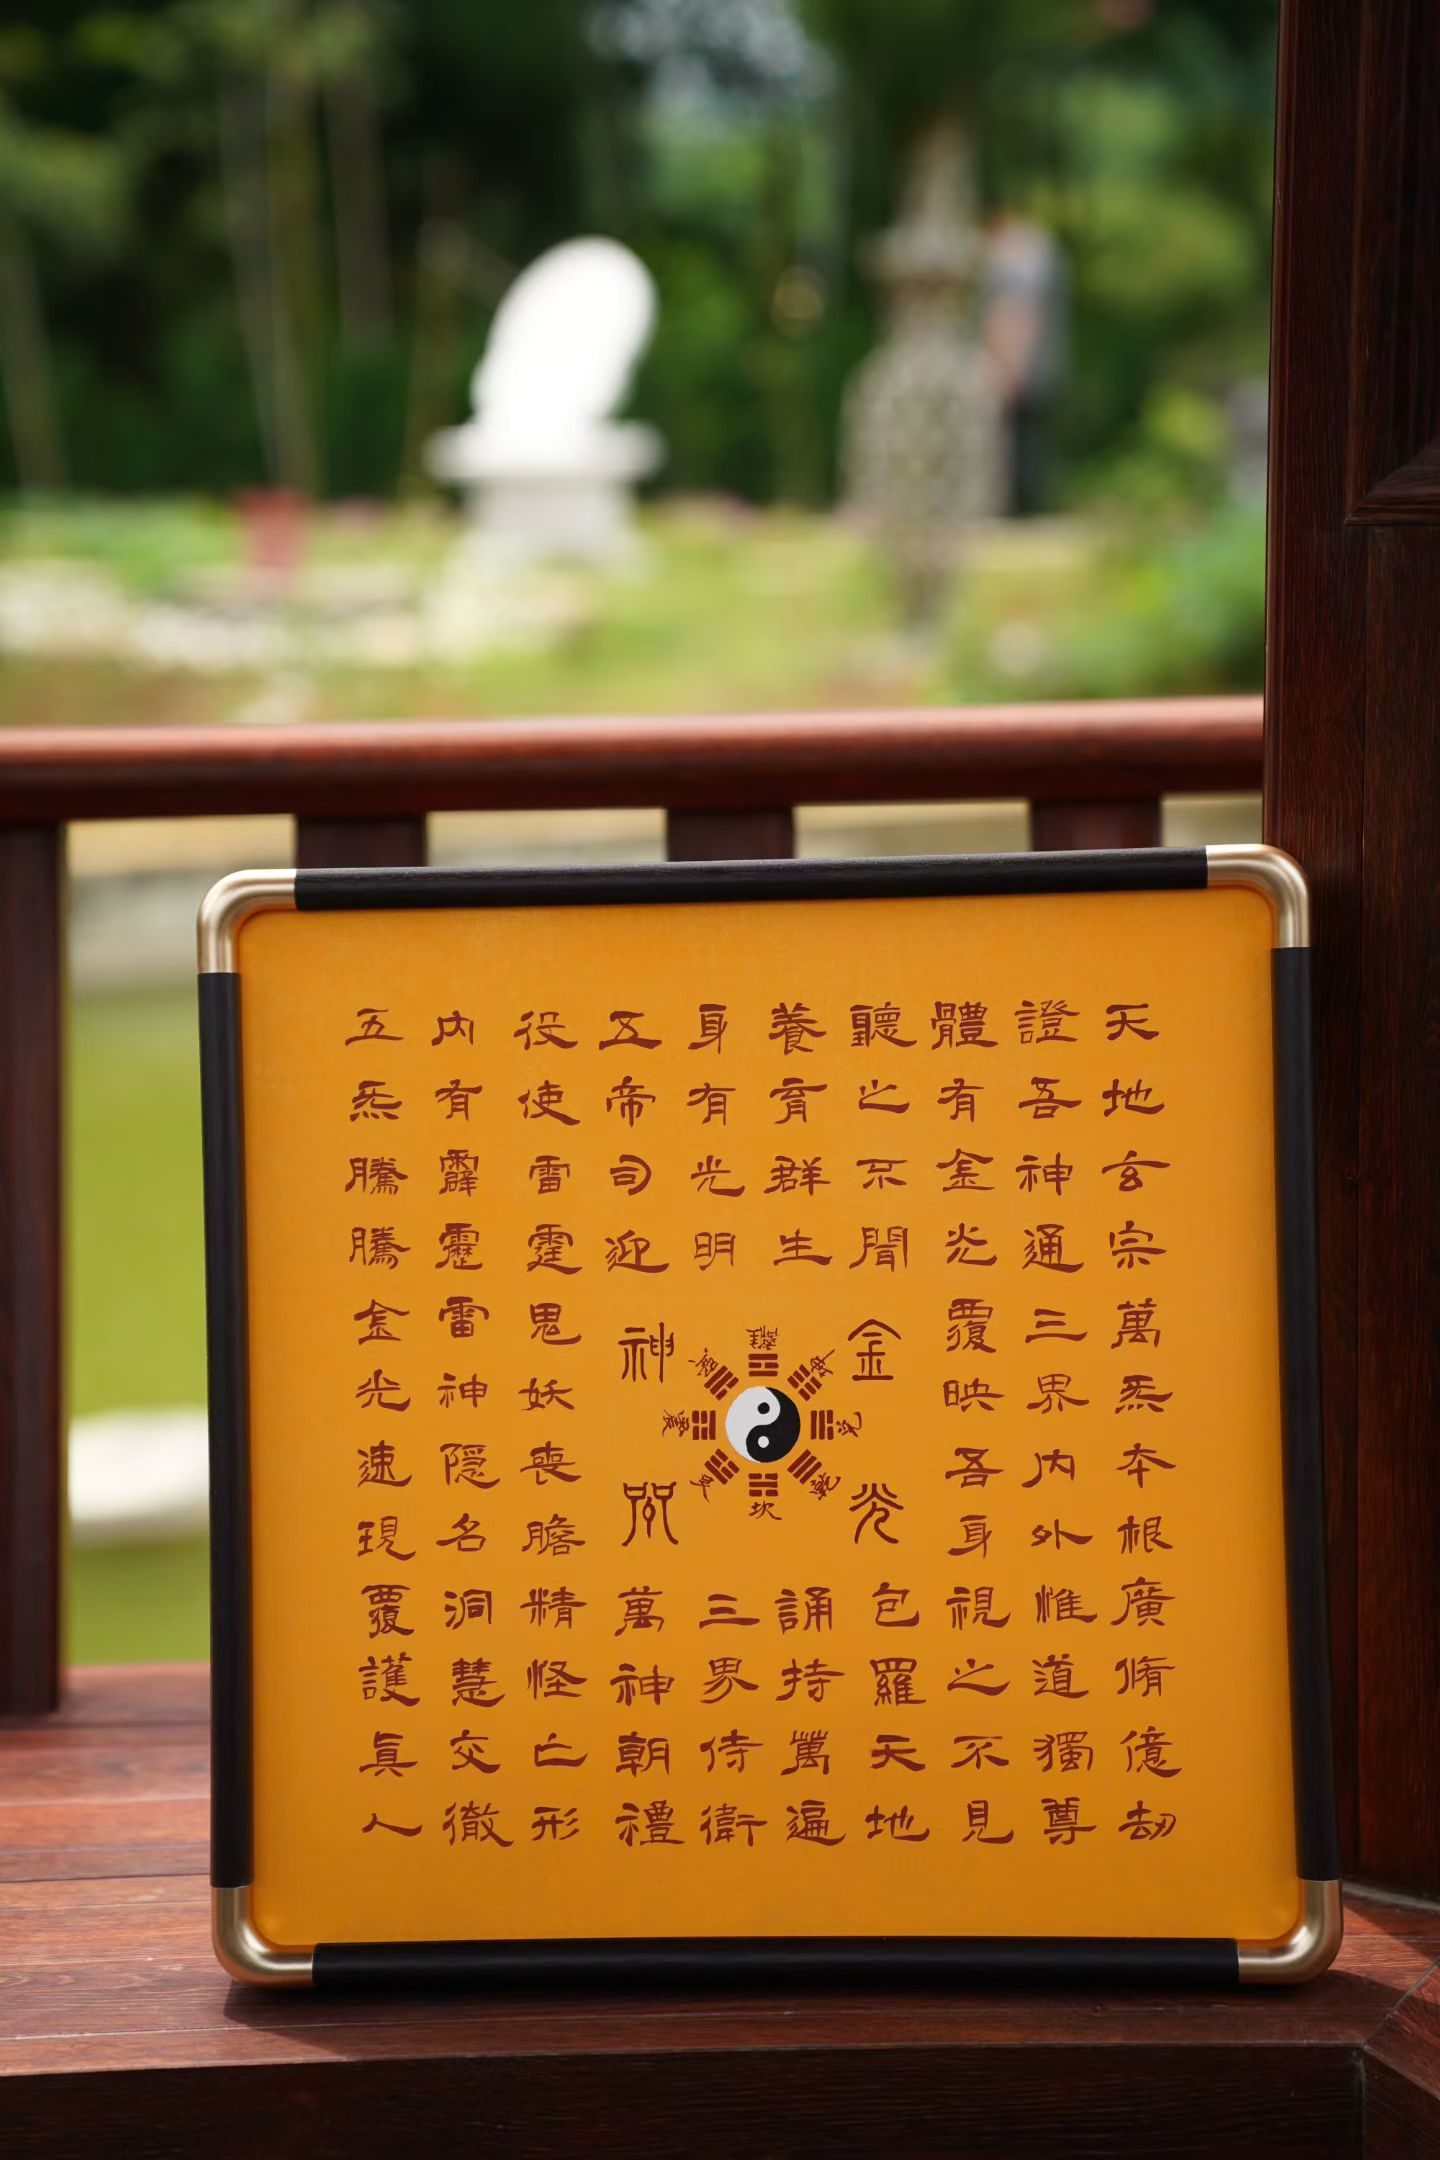 天地玄宗萬炁本根廣脩億劫
證吾神通三界內外惟道獨尊
體有金光覆映吾身視之不見
聽之不聞包羅天地
養育群生誦持萬遍
身有光明三界侍衛
五帝司迎萬神朝禮
役使雷霆鬼妖喪膽精怪亡形
內有霹靂雷神隱名洞慧交徹
五炁騰騰金光速現覆護眞人
金光
神咒
離
坤
兌
乾
坎
艮
震
巽